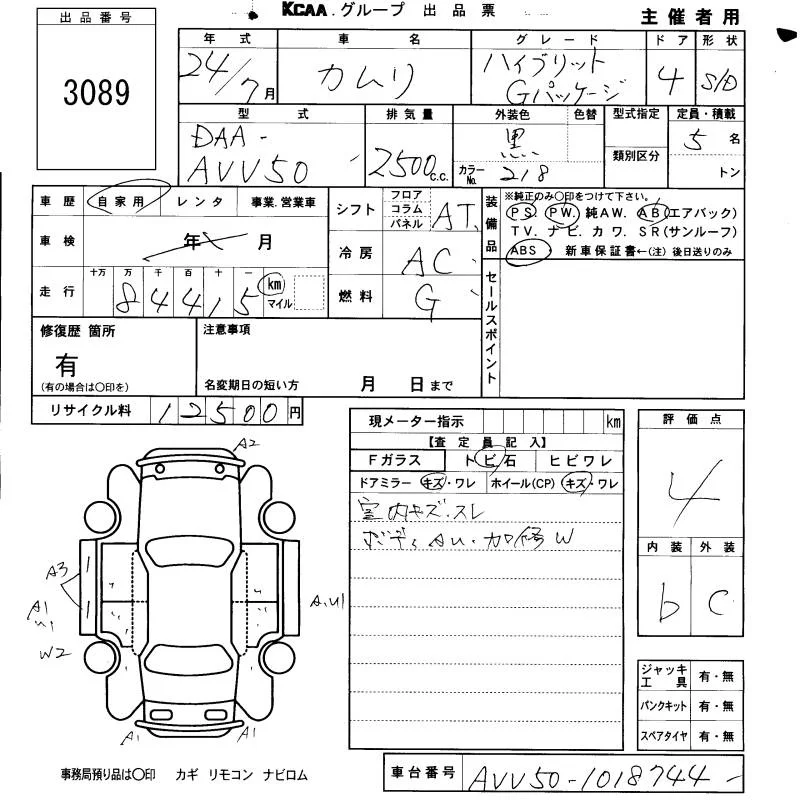 KCAA.グループ 出品票
主催者用
出品番号
3089
年式 車名 グレード ドア 形状
24/7月 カムリ ハイブリット Gパッケージ 4 S/D
型式 排気量 外装色 色替 型式指定 定員・積載
DAA-
AVV50 2500c.c. 黒 カラーNo. 218 類別区分 5名
トン
車歴 自家用 レンタ 事業.営業車
車検 年 月
走行 十万 万 千 百 十 一
84415 km マイル
シフト フロア コラム パネル AT
冷房 AC
燃料 G
装備品 ※純正のみ〇印をつけて下さい。
PS PW. 純AW. AB(エアバック)
TV. ナビ. カワ. SR(サンルーフ)
ABS 新車保証書←(注)後日送りのみ
セールスポイント
修復歴 箇所
有
(有の場合は〇印を)
注意事項
名変期日の短い方 月 日まで
リサイクル料 12500円
現メーター指示 km
【査定員記入】
Fガラス トビ石 ヒビワレ
ドアミラー キズ・ワレ ホイール(CP) キズ・ワレ
室内キズ.スレ
ボディAU.加修W
評価点
4
内装 外装
b C
A2
A3
A1
U1
W2
A.U1
A1 A1
ジャッキ工具 有・無
パンクキット 有・無
スペアタイヤ 有・無
事務局預り品は〇印 カギ リモコン ナビロム
車台番号 AVV50-1018744